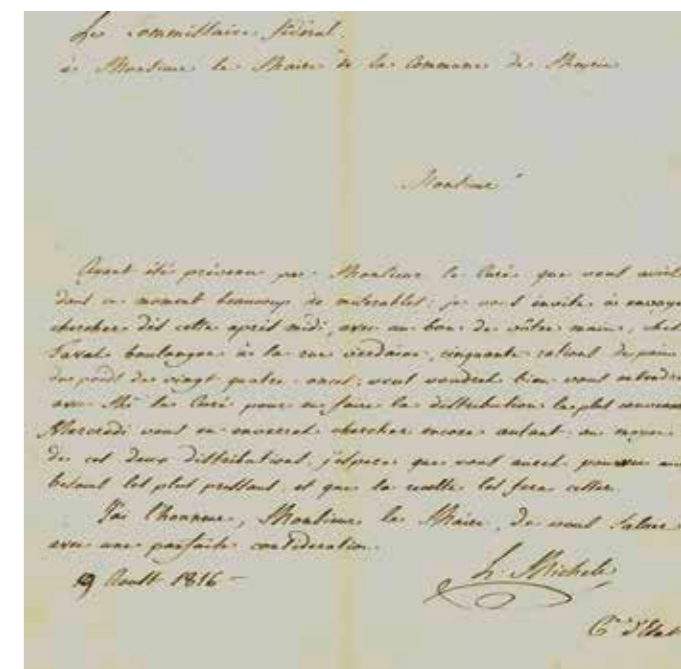 Le Commissaire fédéral.
à Monsieur le Maire de la Commune de Meyrin
Monsieur
Ayant été prévenu par Monsieur le Curé que vous aviés
dans ce moment beaucoup de miserables, je vous invite à envoyer
chercher dès cette après midi, avec un bon de vôtre main, chès
Favas boulanger à la rue verdaine, cinquante rations de pain
du poids de vingt quatre onces; vous voudrés bien vous entendre
avec Mr le Curé pour en faire la distribution la plus convenable
Mercredi vous en enverrés chercher encore autant. au moyen
de ces deux distributions, j'espere que vous aurés pourvu aux
besoins les plus pressans, et que la recolte les fera cesser.
J'ai l'honneur, Monsieur le Maire, de vous saluer
avec une parfaite consideration.
9 Aoust 1816 -
L. Micheli
C. d'Etat